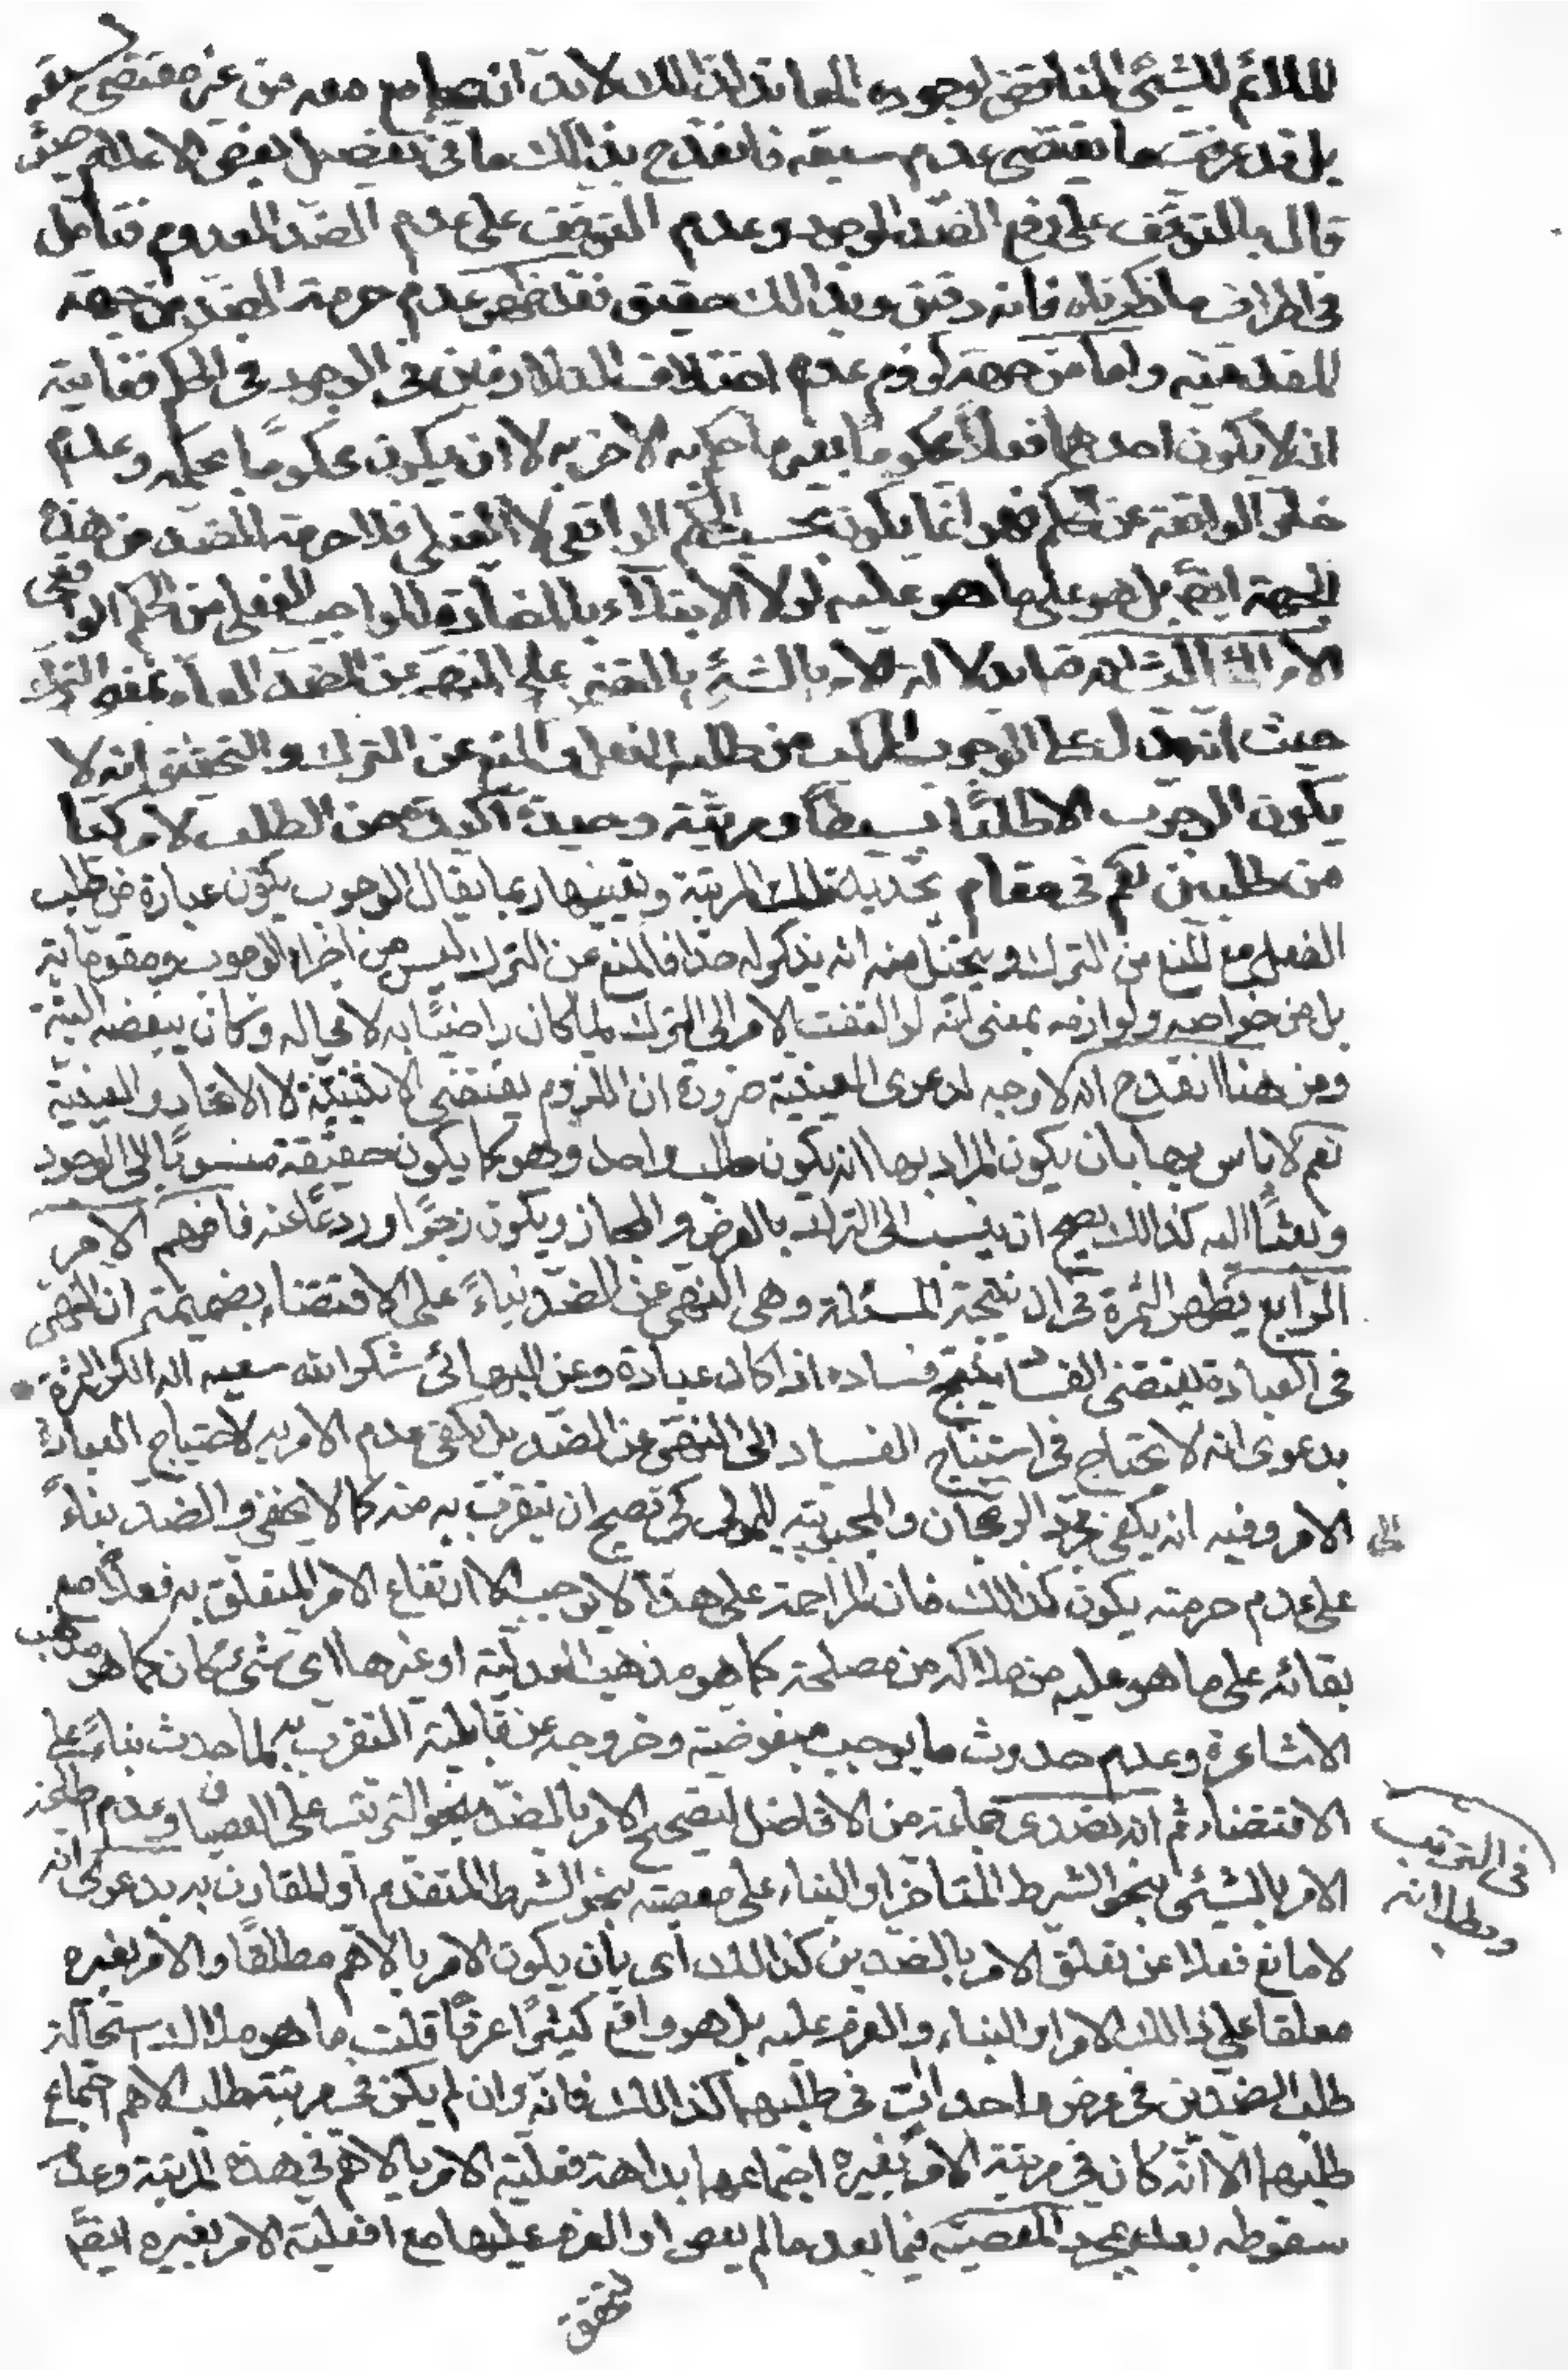 للملائم للشئ المناقض لوجوده المعاند لذلك لابد ان يجامع معه من غير مقتضى لسبقه
بل قد عرفت ما يقتضى عدم سبقه فانقدح بذلك ما فى تفصيل بعض الاعلام حيث
قال بالتوقف على رفع الضد الموجود وعدم التوقف على عدم الضد المعدوم فتأمل
فى اطراف ما ذكرناه فانه دقيق وبذلك حقيق فقد ظهر عدم حرمة الضد من جهة
المقدمية واما من جهة لزوم عدم اختلاف المتلازمين فى الوجود فى الحكم فغايته
ان لا يكون احدهما فعلا محكوما بغير ما حكم به الاخر به لا ان يكون محكوما بحكمه وعدم
خلو الواقعة عن الحكم فهو انما يكون بحسب الحكم الواقعى لا الفعلى فلا حرمة للضد من هذه
الجهة ايضا بل هو على ما هو عليه لولا الابتلاء بالمضادة للواجب الفعلى من الحكم الواقعى
الامر الثالث انه قيل بدلالة الامر بالشئ بالتضمن على النهى عن الضد العام بمعنى الترك
حيث انه يدل على الوجوب المركب من طلب الفعل والمنع عن الترك والتحقيق انه لا
يكون الوجوب الا طلبا بسيطا ومرتبة وحيدة اكيدة من الطلب لا مركبا
من طلبين نعم فى مقام تحديد تلك المرتبة وتعيينها ربما يقال الوجوب يكون عبارة من طلب
الفعل مع المنع من الترك ويتخيل منه انه يذكر له حدا فالمنع عن الترك ليس من اجزاء الوجوب ومقوماته
بل من خواصه ولوازمه بمعنى انه لو التفت الامر الى الترك لما كان راضيا به لا محاله وكان يبغضه البتة
ومن هنا انقدح انه لا وجه لدعوى العينية ضرورة ان اللزوم يقتضى الاثنينية لا الاتحاد والعينية
نعم لا باس بها بان يكون المراد بها انه يكون طلب واحد وهو كما يكون حقيقة منسوبا الى الوجود
وبعثا اليه كذلك يصح ان ينسب الى الترك بالعرض والمجاز ويكون زجرا وردعا عنه فافهم الامر
الرابع يظهر الثمرة فى ان نتيجة المسئلة وهى النهى عن الضد بناء على الاقتضاء بضميمة ان النهى
فى العبادة يقتضى الفساد ينتج فساده اذا كان عبادة وعن البهائى شكر الله سعيه انه انكر الثمرة
بدعوى انه لا يحتاج فى استنتاج الفساد الى النهى عن الضد بل يكفى عدم الامر به لاحتياج العبادة
الى الامر وفيه انه يكفى مجرد الرجحان والمحبوبية للمولى كى تصح ان يتقرب به منه كما لا يخفى والضد بناء
على عدم حرمته يكون كذلك فان المزاحمة على هذا لا يوجب الا ارتفاع الامر المتعلق به فعلا مع
بقائه على ما هو عليه من ملاكه من مصلحة كما هو مذهب العدلية او غيرها اى شئ كان كما هو مذهب
الاشاعرة وعدم حدوث ما يوجب مبغوضيته وخروجه عن قابلية التقرب به كما حدث بناء على
الاقتضاء ثم انه تصدى جماعة من الافاضل لتصحيح الامر بالضد بنحو الترتب على العصيان وعدم اطاعة
الامر بالشئ بنحو الشرط المتاخر او البناء على معصيته بنحو الشرط المتقدم او المقارن به بدعوى انه
لا مانع فعلا عن تعلق الامر بالضدين كذلك اى بان يكون الامر بالاهم مطلقا والامر بغيره
معلقا على ذلك الامر او البناء والعزم عليه بل هو واقع كثيرا عرفا قلت ما هو ملاك استحالة
طلب الضدين فى عرض واحد ات فى طلبهما كذلك فانه وان لم يكن فى مرتبة طلب الاهم اجتماع
طلبهما الا انه كان فى مرتبة الامر بغيره اجتماعهما بداهة فعلية الامر بالاهم فى هذه المرتبة وعدم
سقوطه بعد بمجرد المعصية فيما بعد ما لم يعص او العزم عليها مع افعلية الامر بغيره ايضا
لتحقق
فى الترتب
وبطلانه